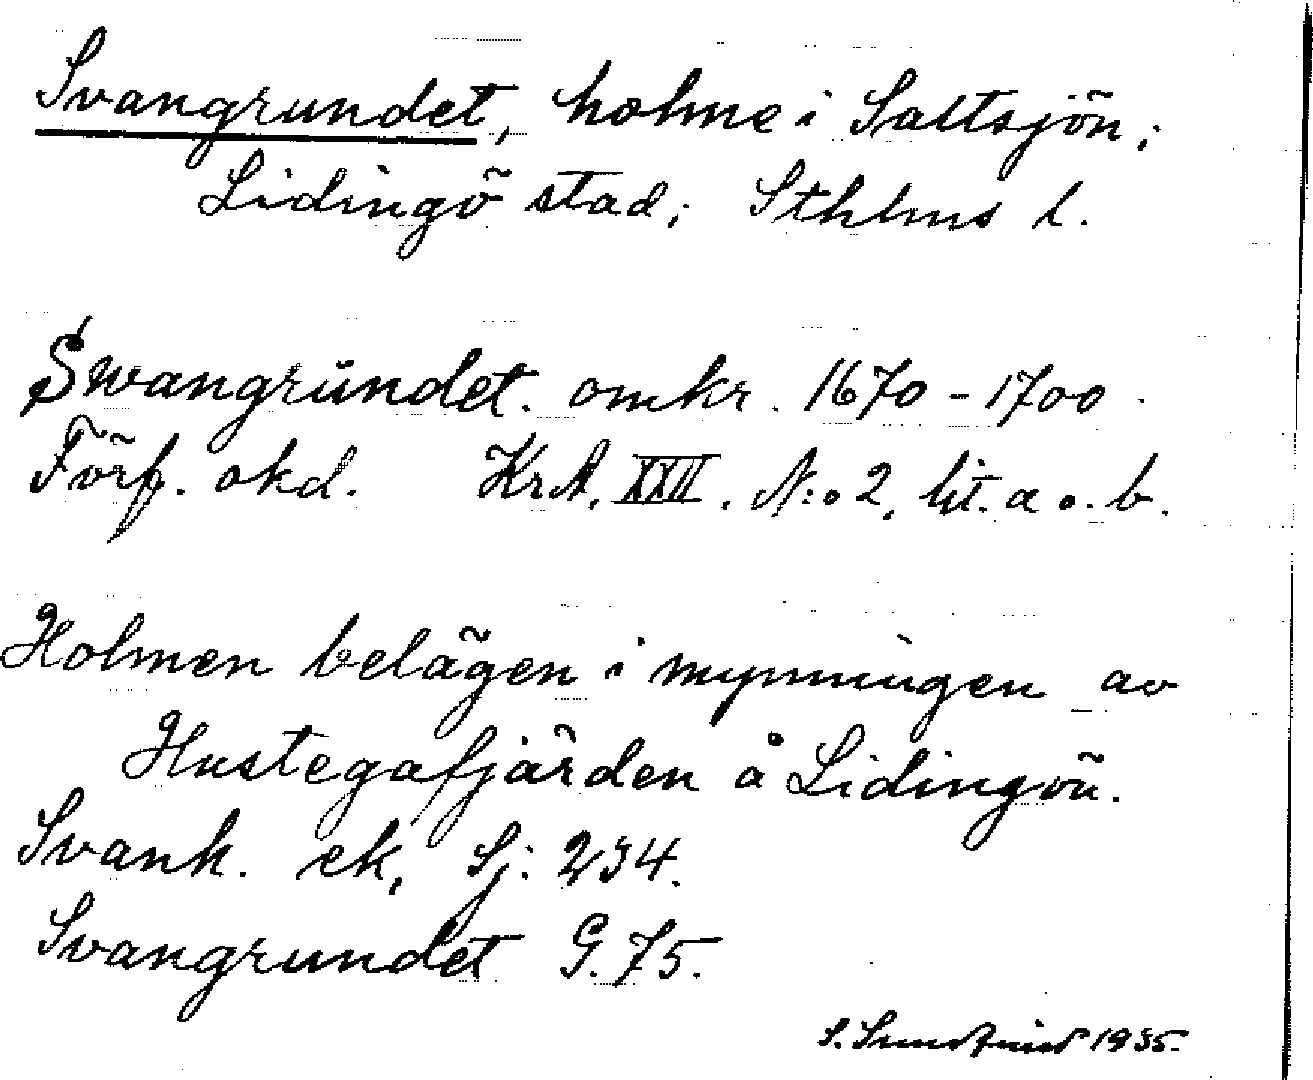 Svangrundet, holme i Saltsjön;
Lidingö stad; Sthlms l.
Swangrŭndet. omkr. 1670-1700.
Förf. okd. KrA. XXII. N:o 2, lit. a o. b.
Holmen belägen i mynningen av
Hustegafjärden å Lidingön.
Svank. ek, Sj: 234.
Svangrundet G. 75.
S. 1935.